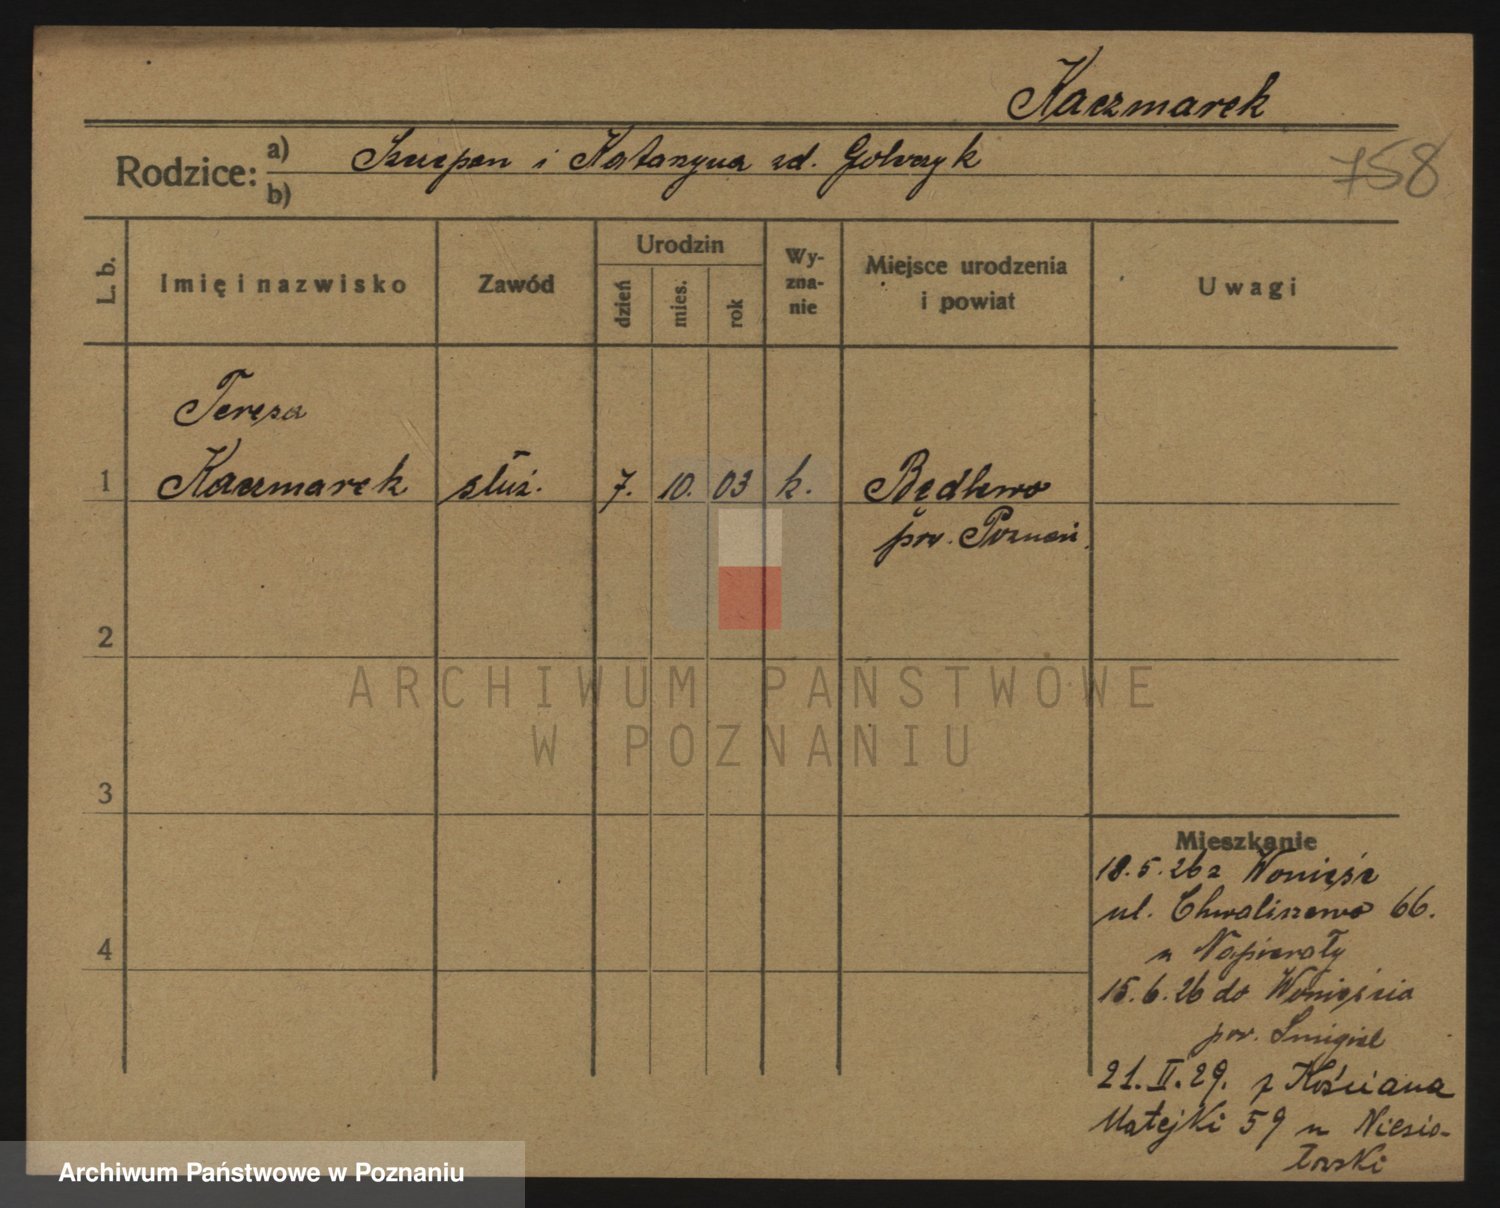 Kaczmarek
758
Rodzice: a) Szczepan i Katarzyna zd.
b)
L. b.
Imię i nazwisko
Zawód
Urodzin
dzień
mies.
rok
Wy-
zna-
nie
Miejsce urodzenia
i powiat
Uwagi
Teresa
1 Kaczmarek służ. 7. 10. 03 k. Będlewo
pow. Poznań
2
3
4
Mieszkanie
18.5.26 z Wonieść
ul. Chwaliszewo 66.
u Napierały
15.6.26 do Wonieścia
pow. Śmigiel
21.II.29. z Kościana
Matejki 59 u Niesio-
łowski
ARCHIWUM PAŃSTWOWE
W POZNANIU
Archiwum Państwowe w Poznaniu